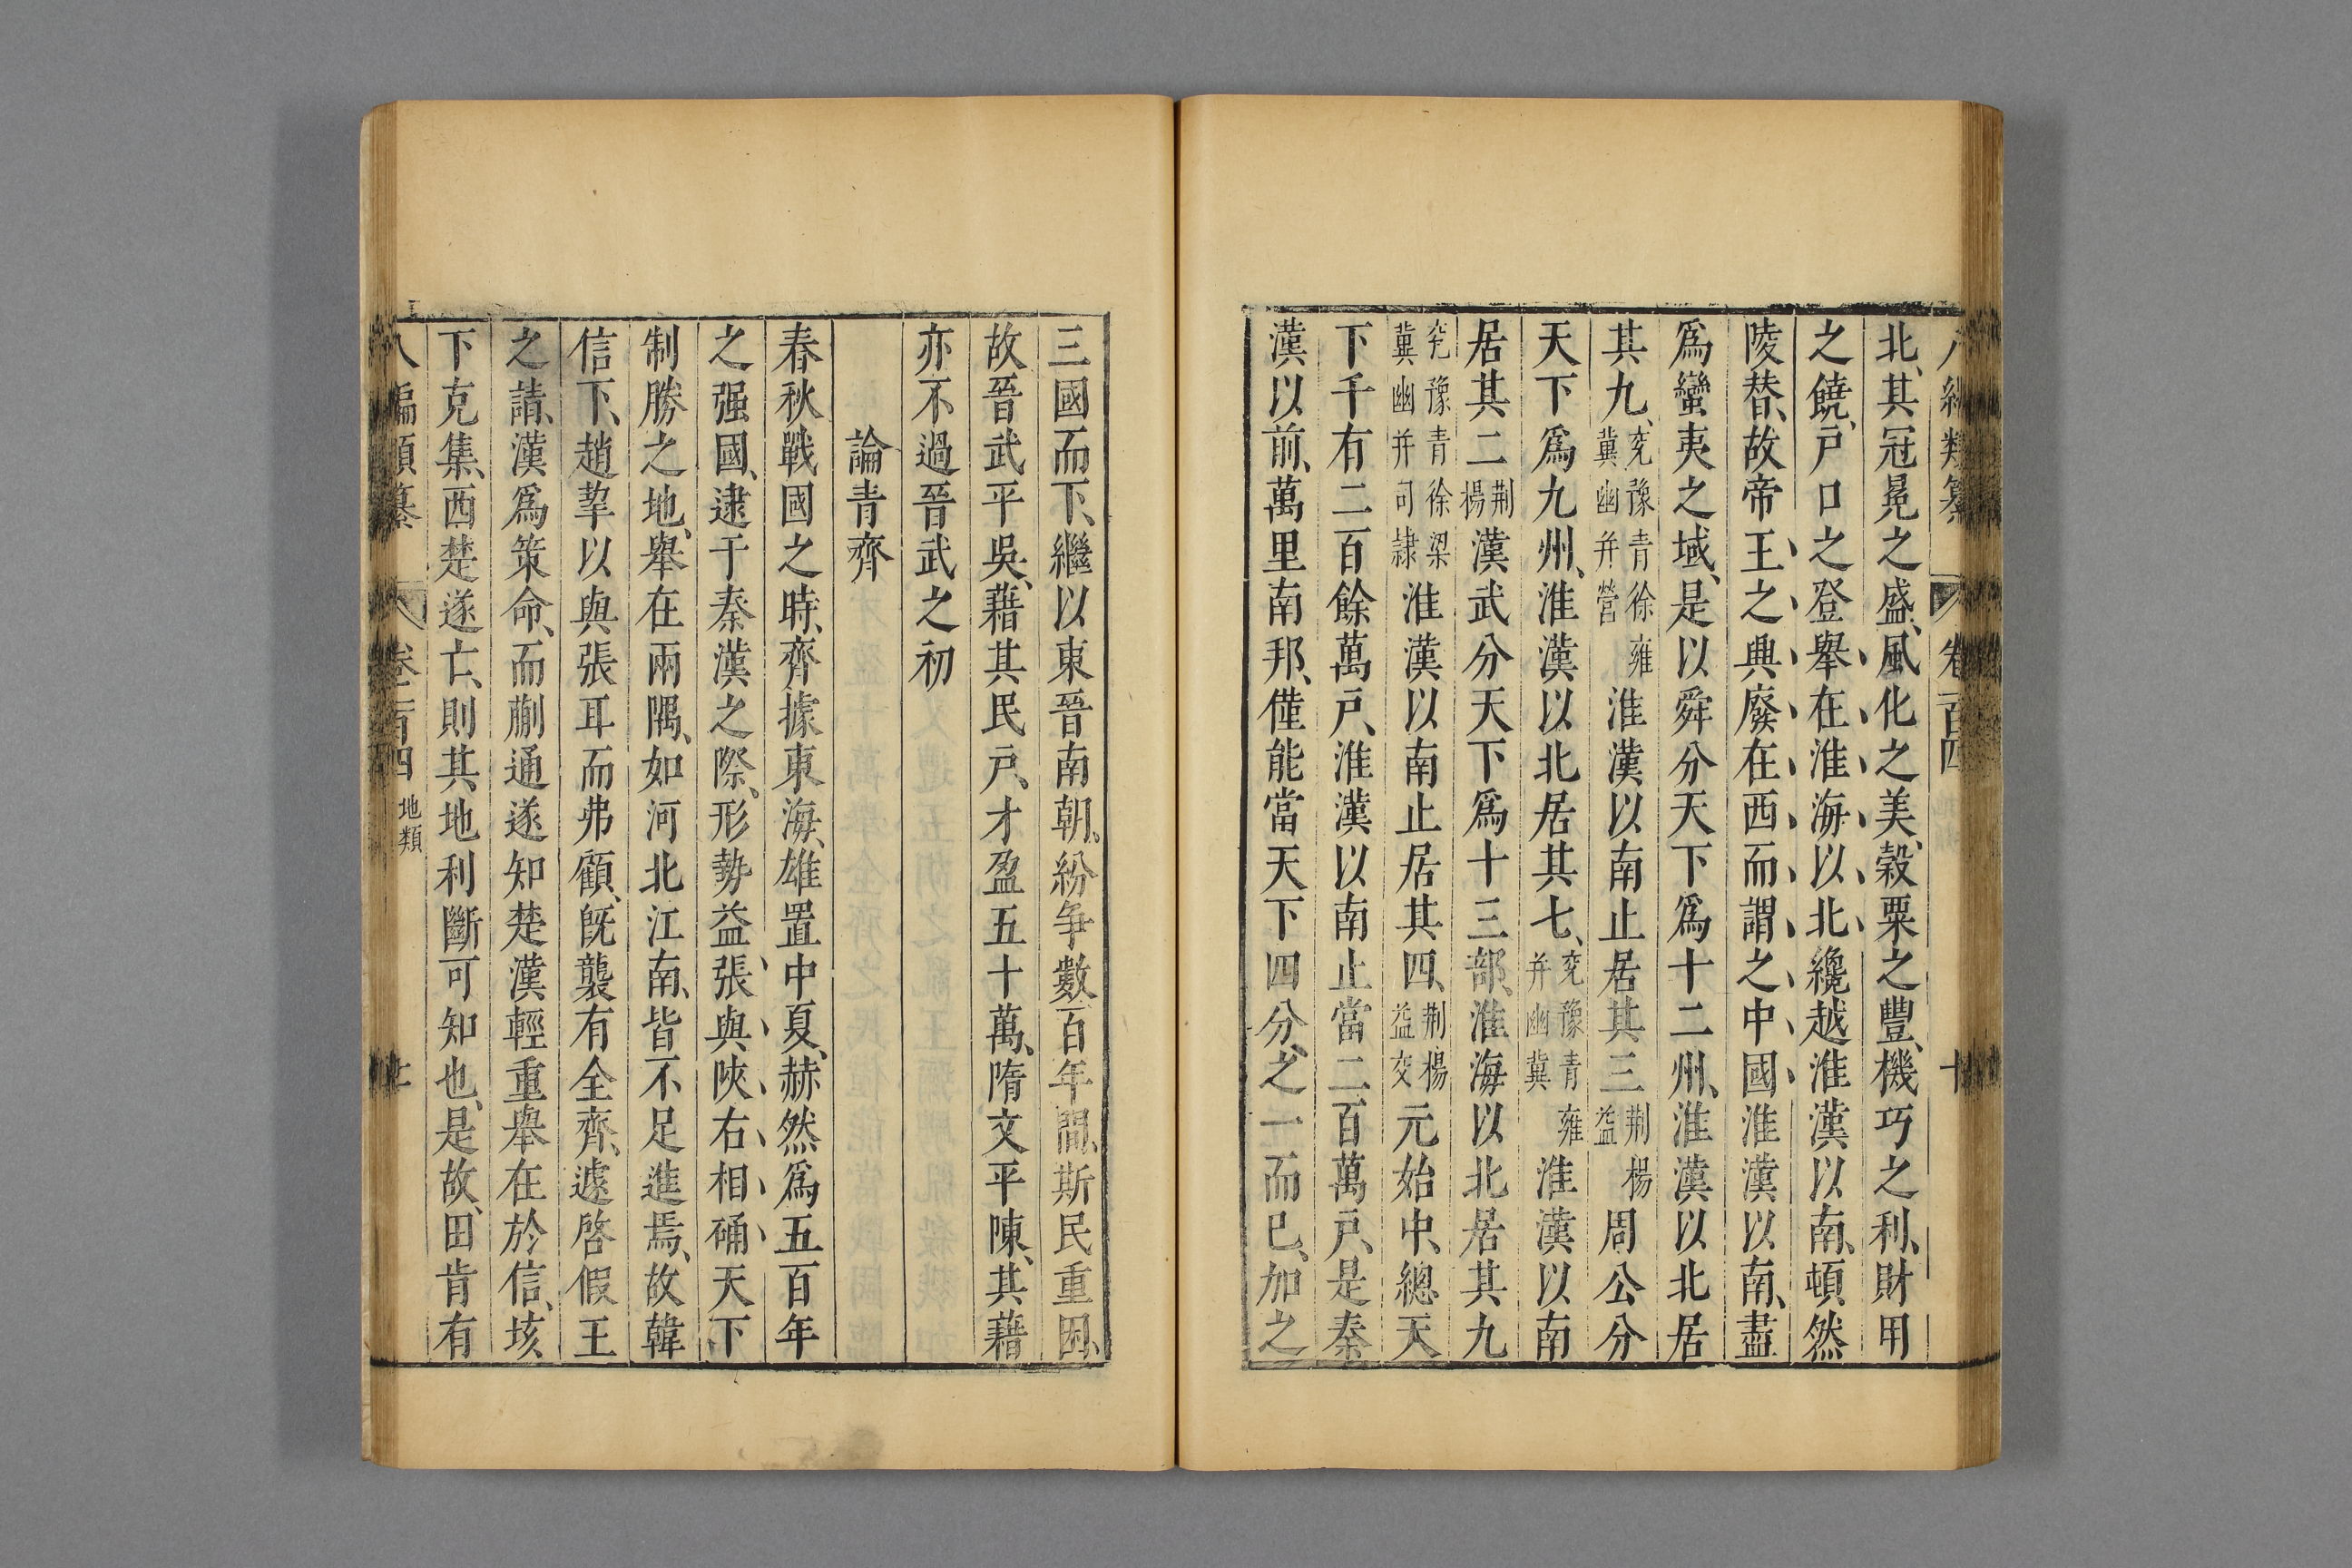 八編類纂 卷一百四 十
北、其冠冕之盛、風化之美、穀粟之豐、機巧之利、財用
之饒、戸口之登舉在淮海以北、纔越淮漢以南、頓然
陵替、故帝王之典廢在西而謂之中國淮漢以南、盡
爲蠻夷之域、是以舜分天下爲十二州、淮漢以北居
其九、兖豫青徐雍冀幽并營淮漢以南止居其三荆楊益周公分
天下爲九州、淮漢以北居其七、兖豫青雍并幽冀淮漢以南
居其二荆楊漢武分天下爲十三部、淮海以北居其九
兖豫青徐梁冀幽并司隷淮漢以南止居其四、荆楊益交元始中、總天
下千有二百餘萬戸、淮漢以南止當二百萬戸、是秦
漢以前、萬里南邦、僅能當天下四分之一而已、加之
三國而下、繼以東晉南朝、紛争數百年間、斯民重困、
故晉武平吳、藉其民戸、才盈五十萬、隋文平陳、其藉
亦不過晉武之初
論青齊
春秋戰國之時、齊據東海、雄置中夏、赫然爲五百年
之强國、逮于秦漢之際、形勢益張、與陝右相硧天下
制勝之地、舉在兩隅、如河北江南、皆不足進焉、故韓
信下、趙挈以與張耳而弗顧、旣襲有全齊、遽啓假王
之請、漢爲策命、而蒯通遂知楚漢輕重舉在於信、垓
下克集、西楚遂亡、則其地利斷可知也、是故、田肯有
八編類纂 卷一百四 地類 十一